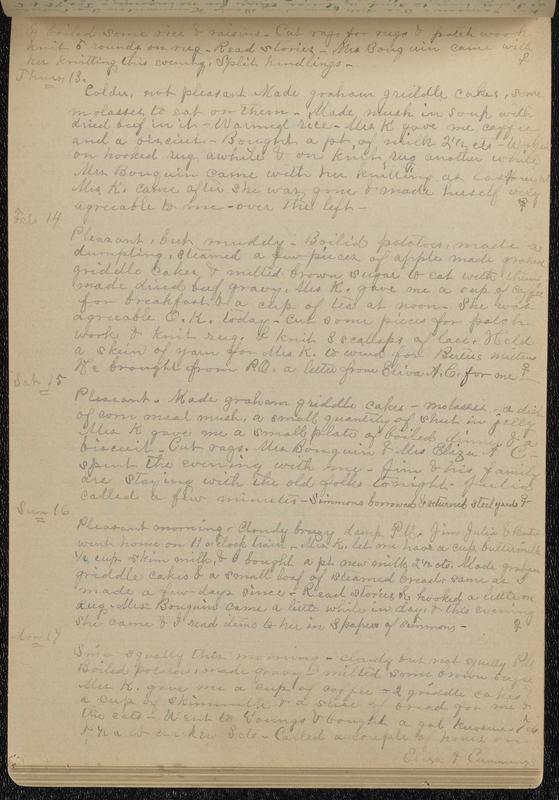 & boiled some rice & raisins - Cut rags for rugs & patch work
knit 5 rounds on rug - Read stories - Mrs Bouquin came with
her knitting this evening. Split kindlings -
Thurs 13.
Colder, not pleasant Made graham griddle cakes, some
molasses to eat on them - Made mush in soup with
dried beef in it - Warmed rice - Mrs K gave me coffee
and a biscuit - Bought a pt of milk 2½ cts - Worked
on hooked rug awhile & on knit rug another while
Mrs Bouquin came with her knitting as
Mrs K. came after she was gone & made herself very
agreeable to me - over the left -
Fri 14
Pleasant, but muddy - Boiled potatoes, made a
dumpling, steamed a few pieces of apple made graham
griddle cakes & melted brown sugar to eat with them
made dried beef gravy. Mrs K. gave me a cup of coffee
for breakfast & a cup of tea at noon - She was
agreeable O.K. today - Cut some pieces for patch
work & knit rug. & knit 3 scallops of lace. Held
a skein of yarn for Mrs K. to wind for Berties mittens
Ke brought from P.O. a letter from Eliza A.C. for me
Sat. 15
Pleasant. Made graham griddle cakes - molasses, a dish
of corn meal mush, a small quantity of shut in jelly
Mrs K gave me a small plate of boiled dinner & a
biscuit - Cut rags. Mrs Bouquin & Mrs Eliza A C-
spent the evening with me - Jim & his family
are staying with the old folks tonight - Julia
called a few minutes - Simmons borrowed & returned steel yards
Sun 16
Pleasant morning - Cloudy breezy damp P.M. Jim Julia & Berto
went home on 11 o'clock train - Mrs K. let me have a cup buttermilk
½ cup skim milk, & I bought a pt new milk 2½ cts. Made graham
griddle cakes & a small loaf of steamed bread same as I
made a few days since - Read stories & hooked a little on
rug. Mrs Bouquin came a little while in day, & this evening
she came & I read items to her in papers of Simmons -
Mon 17
Snow squally this morning - cloudy but not squally P.M.
Boiled potatoes, made gravy & melted some brown sugar
Mrs K. gave me a cup of coffee - 2 griddle cakes &
a cup of skimmilk & a slice of bread for me &
the cats - Went to Youngs & bought a gal kerosene
Called a couple of hours on
Eliza A Cummins